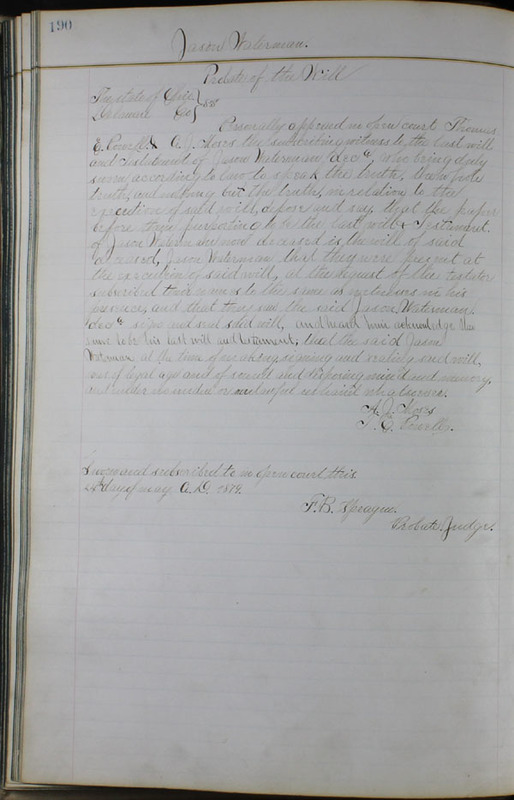 190
Jason Waterman.
Probate of the Will
The state of Ohio }
Delaware Co } ss
Personally appeared in open court Thomas
E. Powell & A. J. the subscribing witness to the last will
and testament of Jason Waterman, decd, who being duly
sworn according to law to speak the truth, the whole
truth, and nothing but the truth, in relation to the
execution of said will, depose and say, that the paper
before them purporting to be the last will & Testament
of Jason Waterman now deceased is the will of said
deceased, Jason Waterman that they were present at
the execution of said will, at the request of the testator
subscribed their names to the same as witnesses in his
presence, and that they saw the said Jason Waterman
decd sign and seal said will, and heard him acknowledge the
same to be his last will and testament; that the said Jason
Waterman, at the time of making, signing and sealing said will,
was of legal age and of sound and disposing mind and memory,
and under no undue or unlawful restraint whatsoever.
A. J.
T. E. Powell.
Sworn and subscribed to in open court this
day of may A.D. 1879.
F. B. Sprague.
Probate Judge.